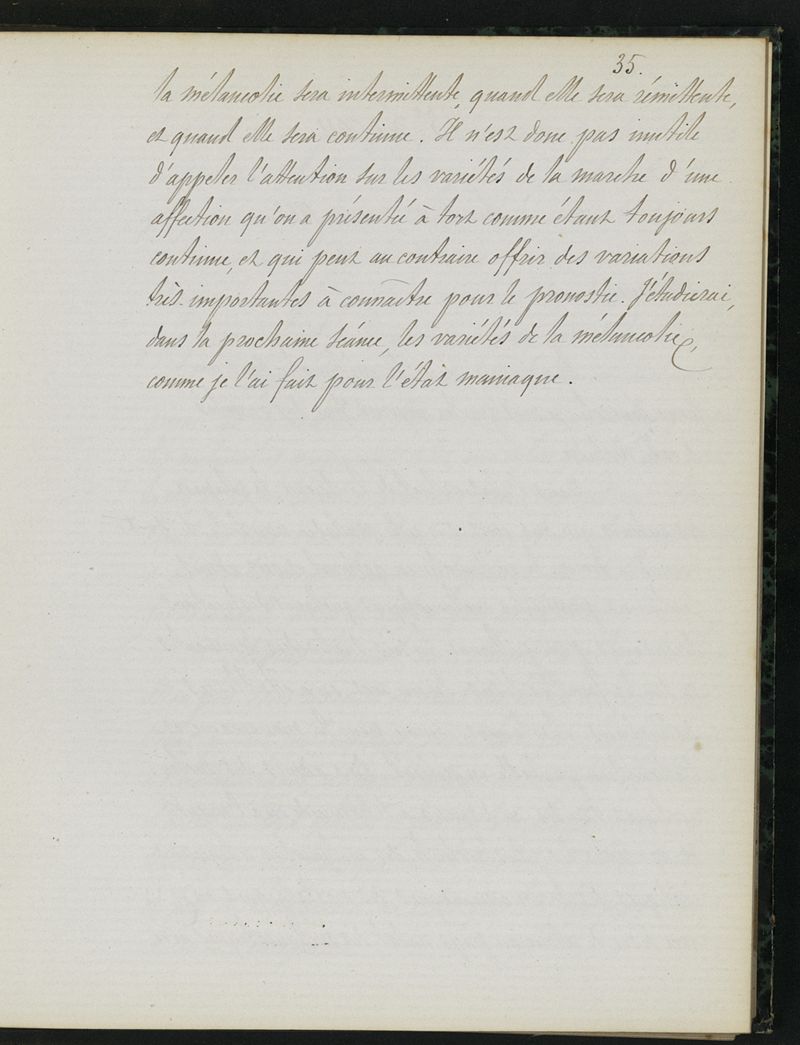 35.
la mélancolie sera intermittente, quand elle sera rémittente,
et quand elle sera continue. Il n'est donc pas inutile
d'appeler l'attention sur les variétés de la marche d'une
affection qu'on a présentée à tort comme étant toujours
continue, et qui peut au contraire offrir des variations
très importantes à connaître pour le pronostic. J'étudierai,
dans la prochaine séance, les variétés de la mélancolie,
comme je l'ai fait pour l'état maniaque.